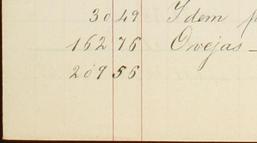 30 49 Idem
162 76 Ovejas -
209 56